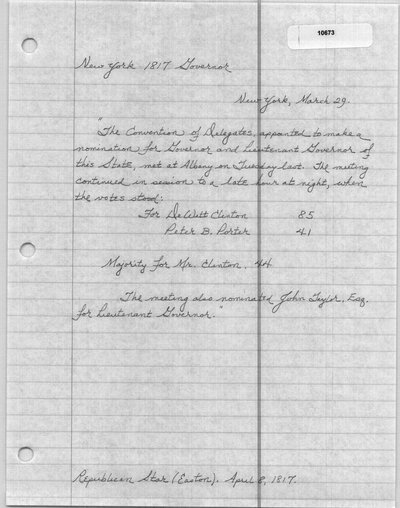 10673
New York 1817 Governor
New York, March 29.
"The Convention of Delegates, appointed to make a
nomination for Governor and Lieutenant Governor of
this State, met at Albany on Tuesday last. The meeting
continued in session to a late hour at night, when
the votes stood:
For DeWitt Clinton 85
Peter B. Porter 41
Majority for Mr. Clinton, 44
The meeting also nominated John Taylor, Esq.
for Lieutenant Governor."
Republican Star (Easton). April 8, 1817.